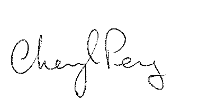 Cheryl Perry